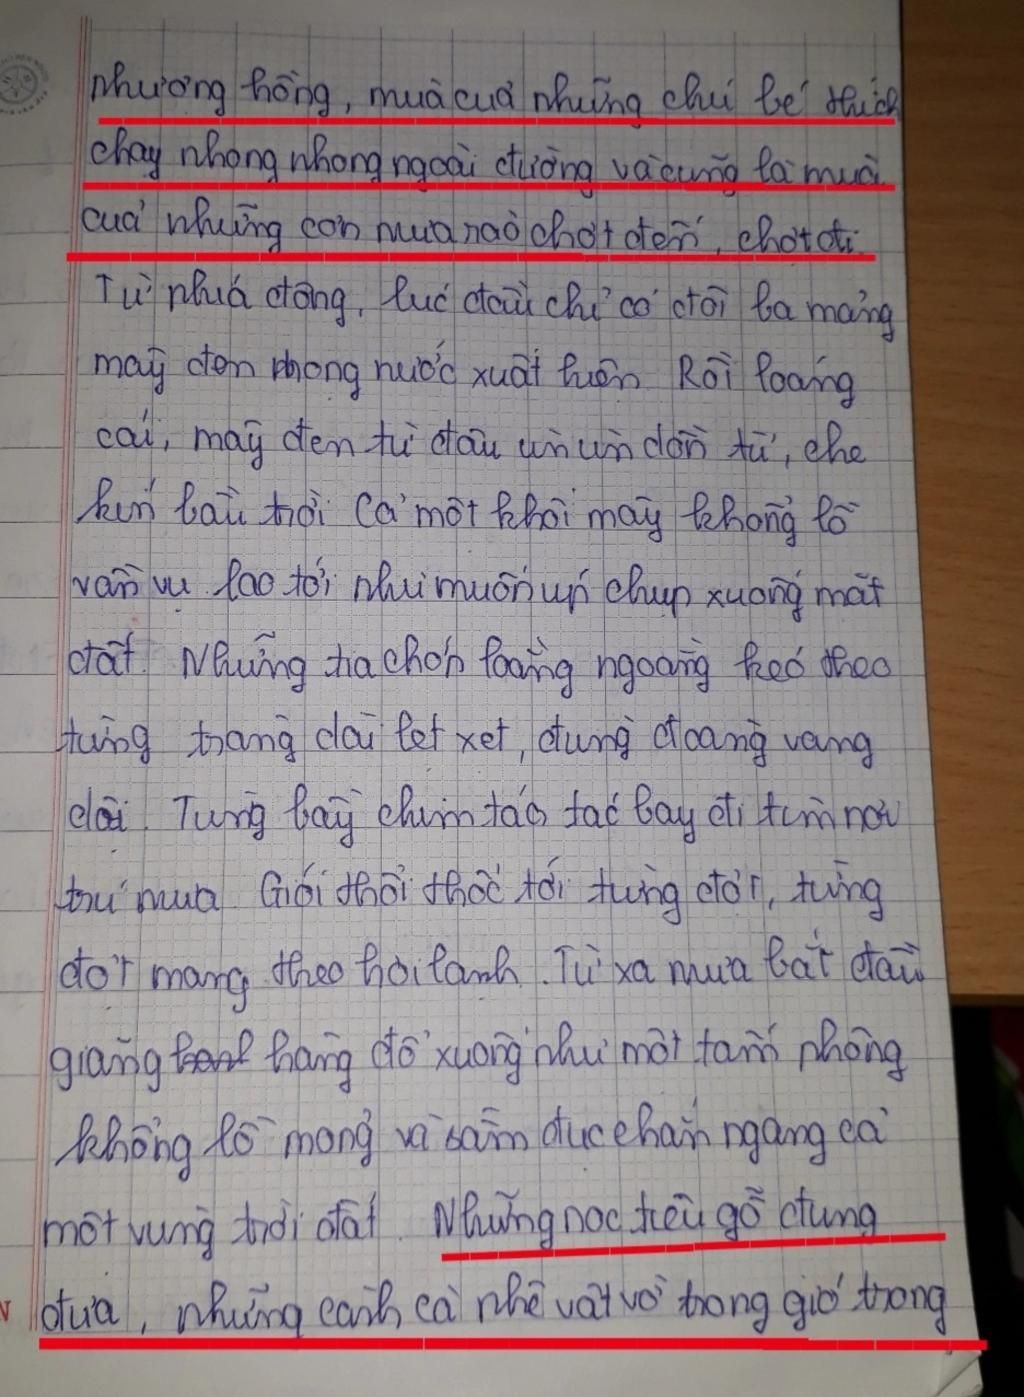 phượng hồng, mùa của những chú bé thích
chạy nhong nhong ngoài đường và cũng là mùa
của những cơn mưa rào chợt đến, chợt đi.
Từ phía đông, lúc đầu chỉ có đôi ba mảng
mây đen mọng nước xuất hiện Rồi loáng
cái, mây đen từ đâu ùn ùn dồn tới, che
kín bầu trời Cả một khối mây khổng lồ
vần vũ lao tới như muốn úp chụp xuống mặt
đất. Những tia chớp loằng ngoằng kéo theo
từng tràng dài lẹt xẹt, đùng đoàng vang
dội. Từng bầy chim táo tác bay đi tìm nơi
trú mưa Gió thổi thốc tới từng đợt, từng
đợt mang theo hơi lạnh. Từ xa mưa bắt đầu
giăng hàng đổ xuống như một tấm phông
khổng lồ mỏng và sẫm đục chắn ngang cả
một vùng trời đất. Những nọc tiêu gỗ đung
đưa, những cành cà phê vật vờ trong gió trong